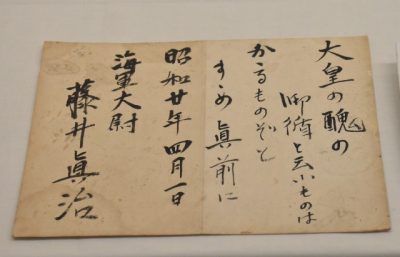 大皇の醜の
御楯と云ふものは
かゝるものぞと
すゝめ眞前に
昭和廿年四月一日
海軍大尉
藤井眞治